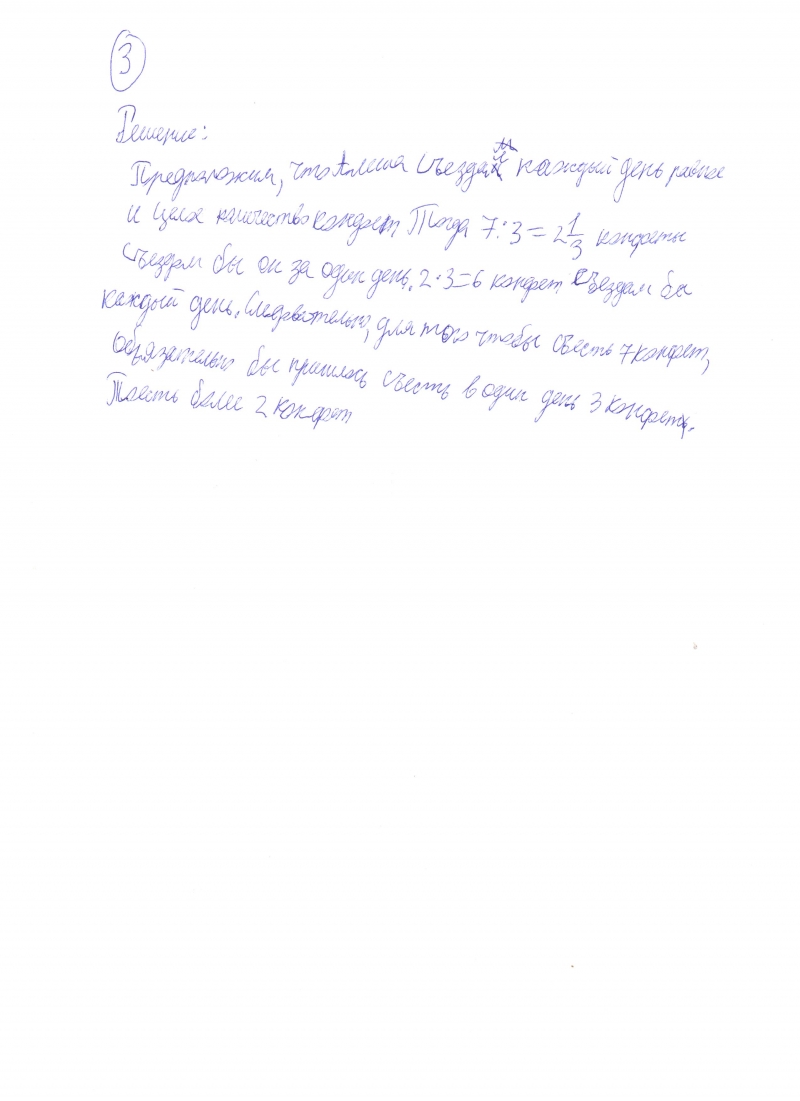 3
Решение:
Предположим, что Алёша съедал каждый день равное
и целое количество конфет. Тогда 7:3=2 1/3 конфеты
съедал бы он за один день. 2·3=6 конфет съедал бы
каждый день. Следовательно, для того чтобы съесть 7 конфет,
обязательно бы пришлось съесть в один день 3 конфеты.
Тоесть более 2 конфет